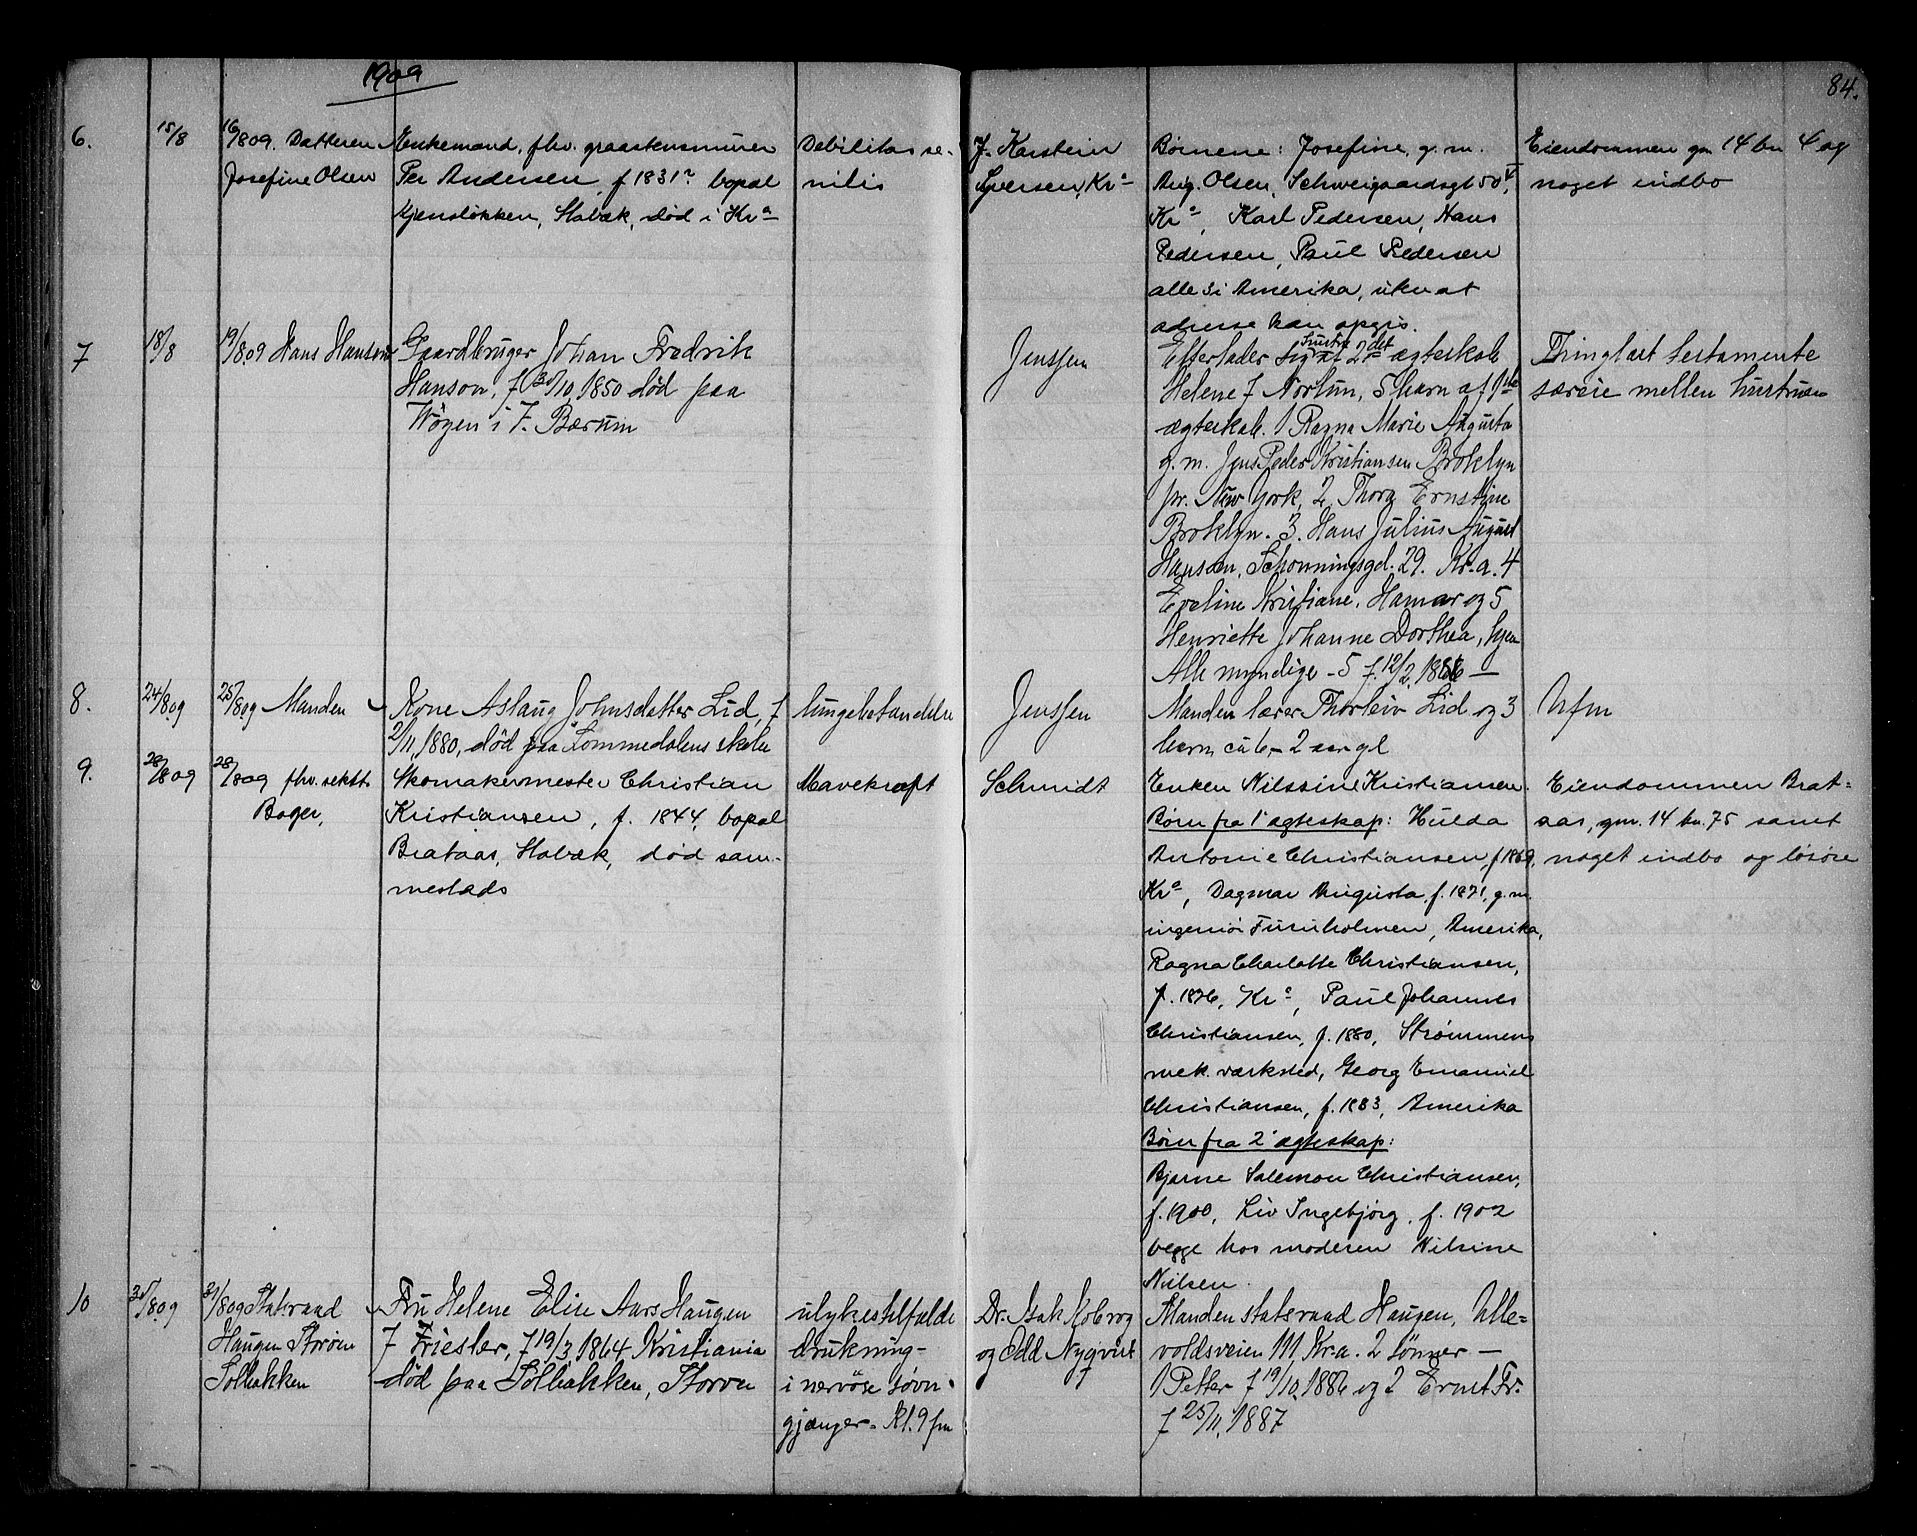 1909
84.
6.
15/8
16/8 09. Datteren
Josefine Olsen
Enkemand, fhv. graastensminer
Per Andersen f 1831? bopæl
Kjensløkken, Stabæk, død i Kr.a
Debilitas se-
nilis
J. Karstein
Iversen, Kr.a
Børnene: Josefine, g.m.
Aug. Olsen, Schweigaardsgt 50 V,
Kr.a, Karl Pedersen, Hans
Pedersen, Paul Pedersen
alle 3 i Amerika, uten at
adresse kan opgis.
Eiendommen gn 14 bn 4 og
noget indbo
7
18/8
19/8 09 Hans Hanson
Gaardbruger Johan Fredrik
Hanson, f 30/10 1850 død paa
Wøyen i V. Bærum
Jenssen
Efterlader sig hustru af 2det ægteskab
Helene f Norlun, 5 barn af 1ste
ægteskab. 1 Ragna Marie Augusta
g.m. Jens Peder Kristiansen Broklyn
pr. New York, 2 Thora Ernstine
Broklyn. 3. Hans Julius August
Hanson, Schønningsgd. 29. Kr.a. 4
Eveline Kristiane, Hamar og 5
Henriette Johanne Dorthea, hjem
Alle myndige - 5 f 12/2 1886 —
Thinglæst testamente
særeie mellen hustruen
8.
24/8 09
25/8 09 Manden
Kone Aslaug Johnsdatter Lid, f
2/11 1880, død paa Lommedalens skole
lungebetændelse
Jenssen
Manden lærer Thorleiv Lid og 3
barn ca 6 - 2 aar gl
Ufm
9.
28/8 09
28/8 09 fhv. sekst.
Bager,
Skomakermester Christian
Kristiansen, f. 1844, bopæl
Brataas, Stabæk, død sam-
mesteds
Mavekræft
Schmidt
Enken Nilssine Kristiansen.
Børn fra 1' ægteskap: Hulda
Antonie Christiansen, f 1869,
Kr.a, Dagmar Augusta, f. 1871, g.m.
ingeniør Furuholmen, Amerika,
Ragna Charlotte Christiansen,
f. 1876, Kr.a, Paul Johannes
Christiansen, f. 1880, Strømmens
mek. værksted, Georg Emanuel
Christiansen, f. 1883, Amerika
Børn fra 2' ægteskap:
Bjarne Salemon Christiansen,
f. 1900, Liv Ingebjørg, f. 1902
begge hos moderen Nilsine
Nilsen.
Eiendommen Brat-
aas, gn. 14 bn. 75 samt
noget indbo og løsøre
10
30/8 09
31/8 09 Statsraad
Haugen Storøen
Solbakken
Fru Helene Elise Aars Haugen
f Friesler, f 19/3 1864 Kristiania
død paa Solbakken, Storøen
ulykkestilfælde
drukning -
i nervøse søvn-
gjænger - Kl. 9 fm
Dr. Isak Kobrog
og Odd Nyqvist
Manden statsraad Haugen, Ulle-
voldsveien 111 Kr.a. 2 sønner —
1 Petter f 19/10 1886 og 2 Ernst Fr.
f 25/11 1887